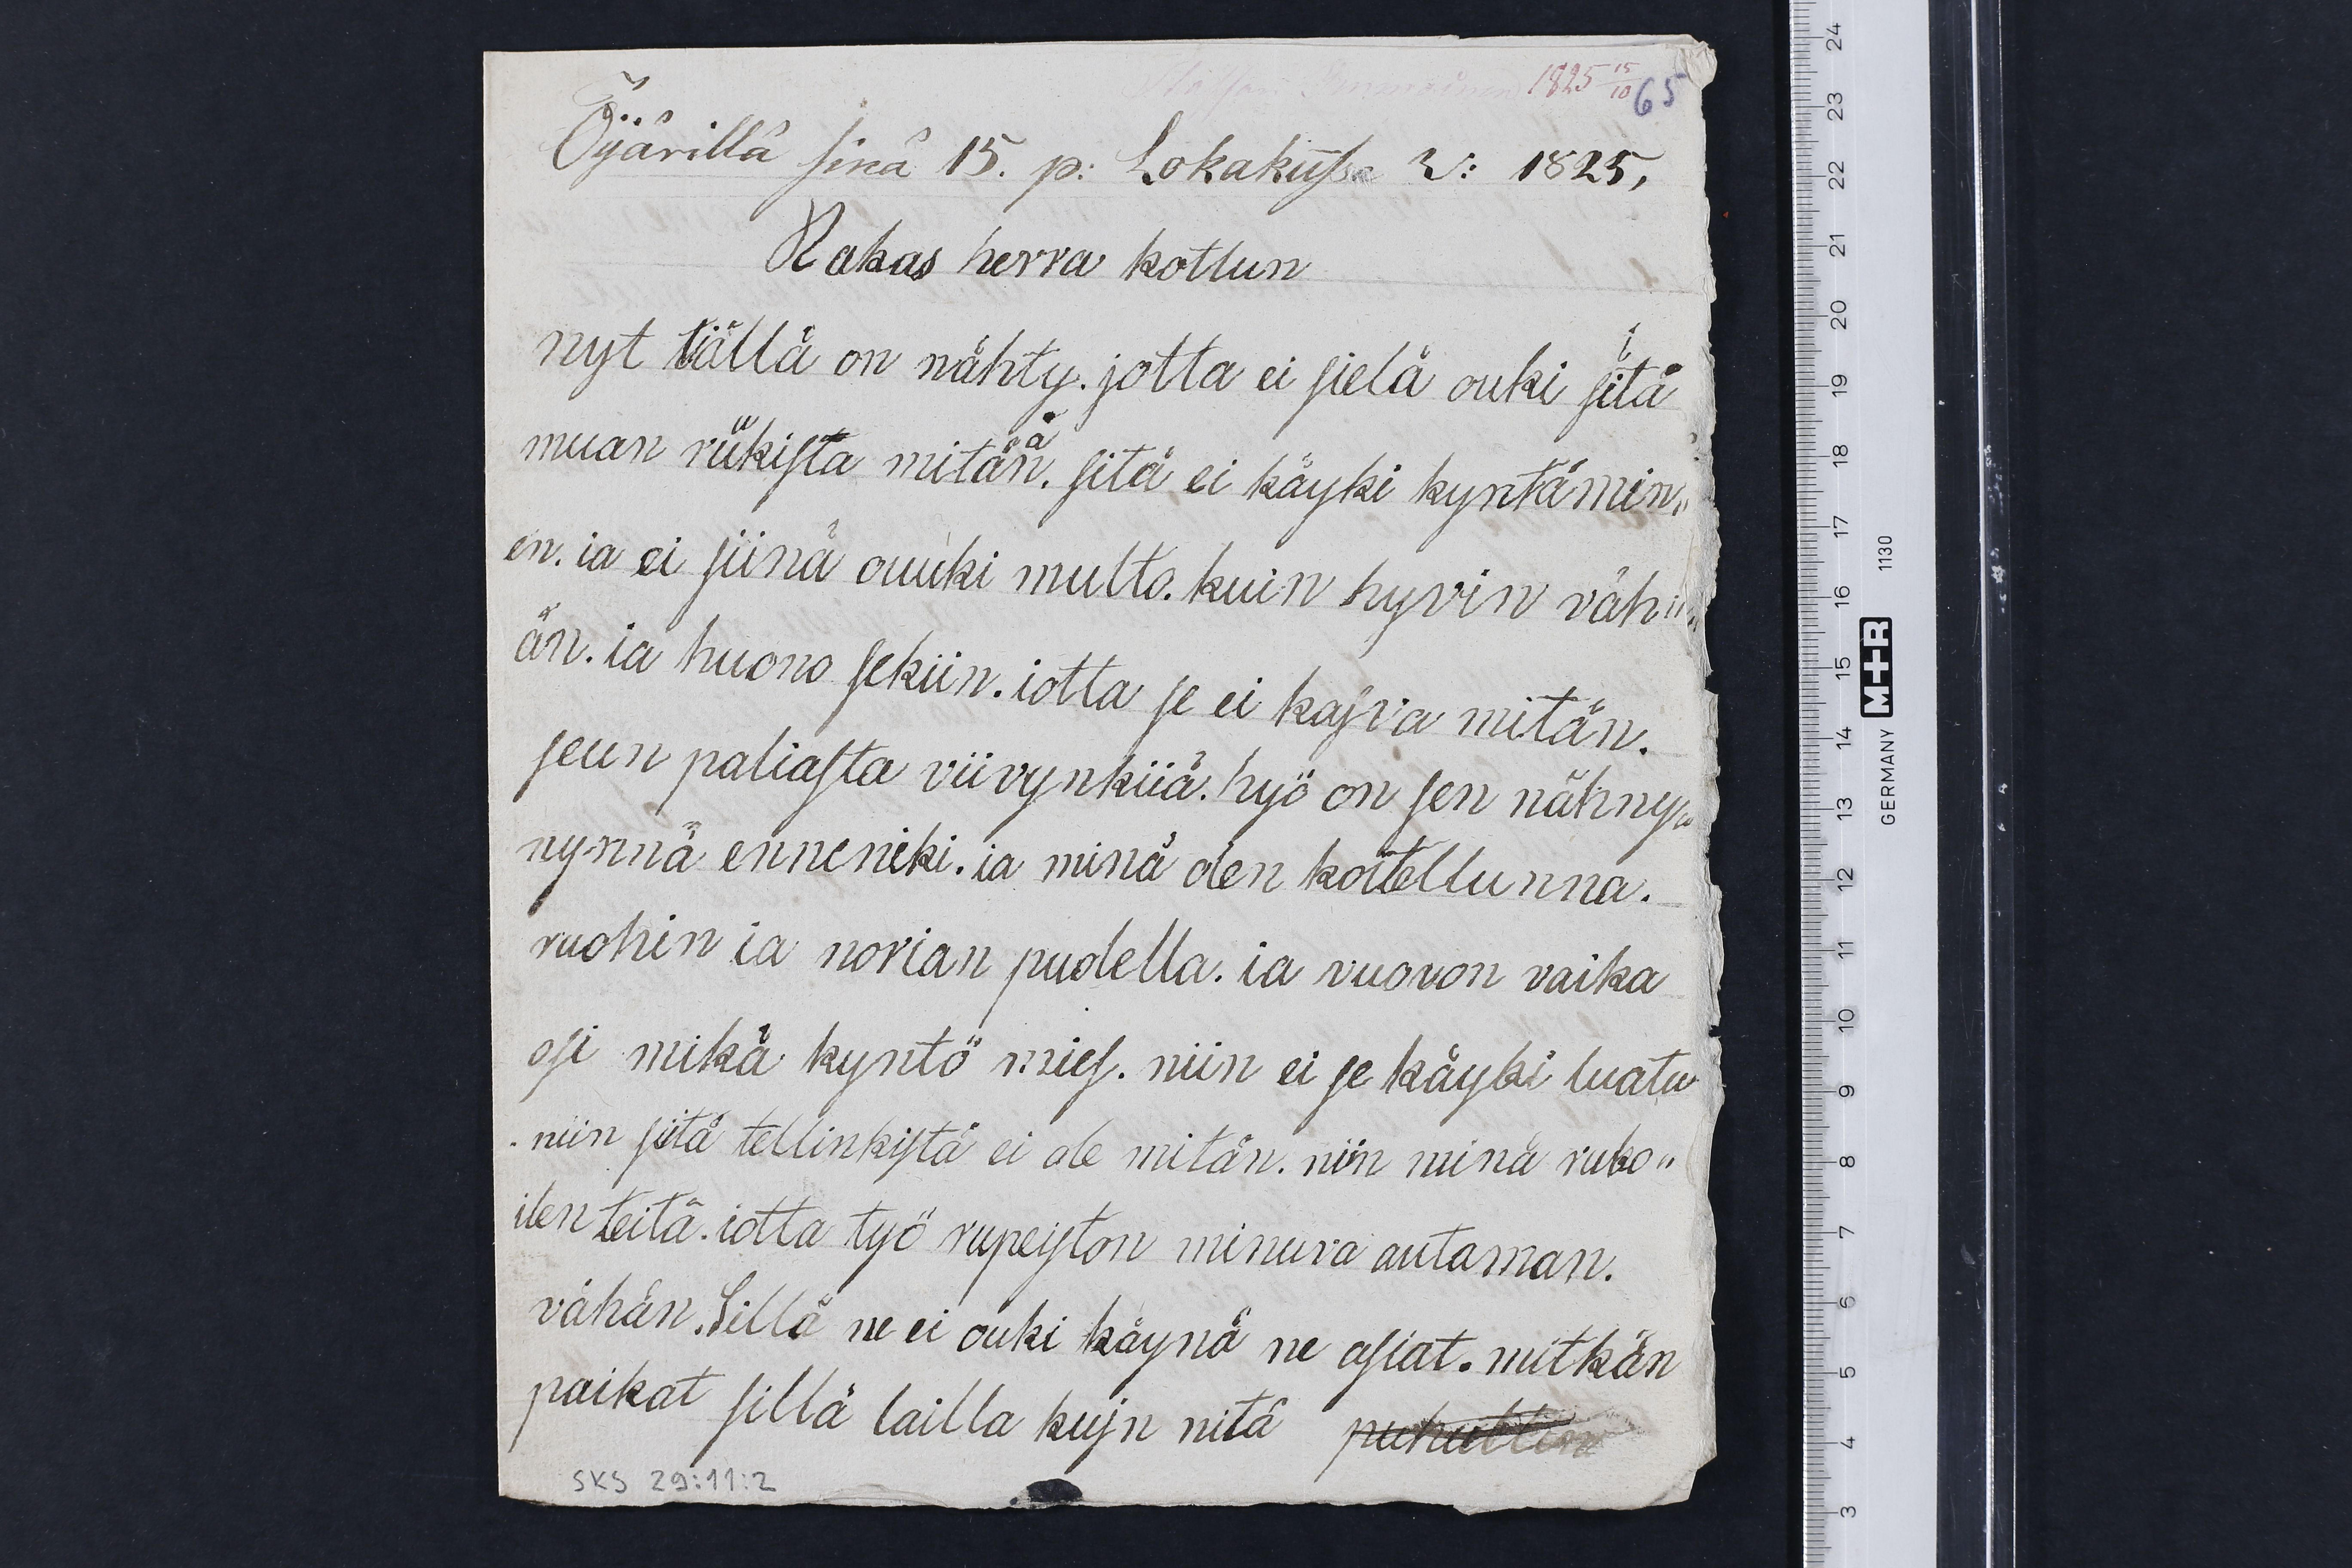 1825 15/10 65
Öÿärillä sinä 15. p: Lokaküssa W: 1825,
Rakas herra kotlun
nyt tiällä on nähty. jotta ei sielä ouki sitä
muan rükista mitänä. sitä ei käyki kyntämin„
en. ia ei siinä ouuki multa. kuin hyvin väh„
än. ia huono sekiin. iotta se ei kasva mitän.
seun paliasta viivynkiiä. hyö on sen nähny„
nynnä enneneki. ia minä olen koitellunna.
ruohin ia norian pudella. ia vuovon vaika
osi mikä kyntö mies. niin ei se käyki luatu
. niin siitä tellinkistä ei ole mitän. niin minä ruko„
ilen teitä. iotta työ rupeiston minura autaman.
vähän. Sillä ne ei ouki käynä ne asiat. mitkän
paikat sillä lailla kujn nitä puhuttin
SKS 29:11:2
24
23
22
21
20
19
18
17
16
15
14
13
12
11
10
9
8
7
6
5
4
3
GERMANY M+R 1130